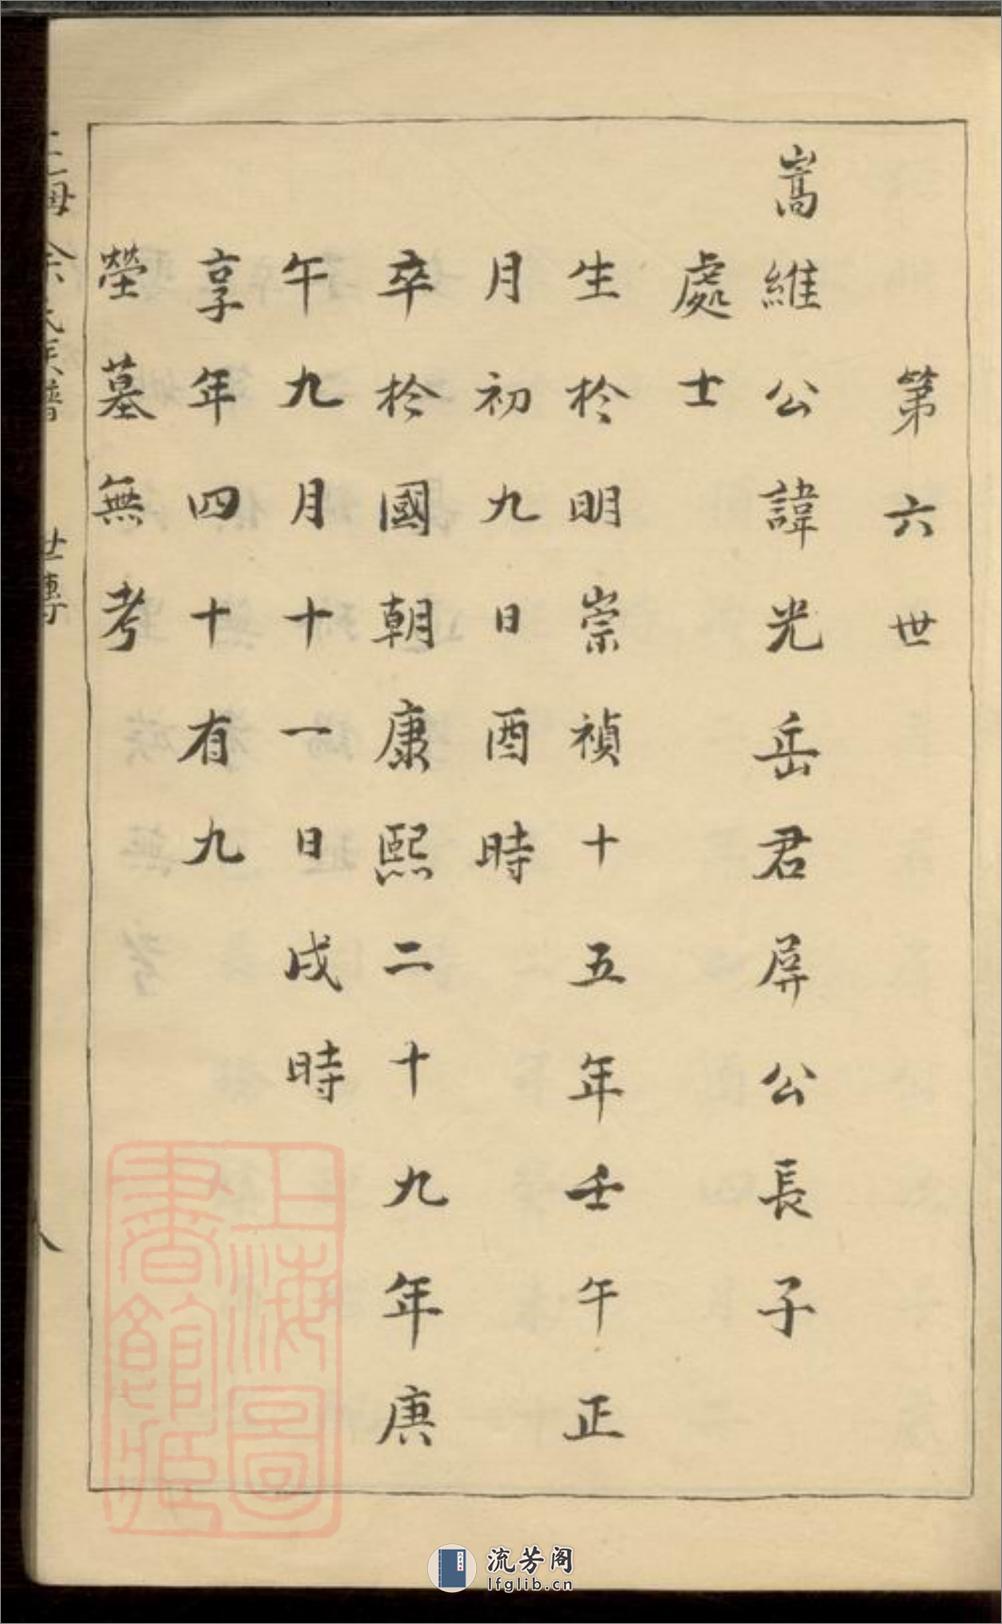 第六世
嵩維公諱光岳君屏公長子
處士
生於明崇禎十五年壬午正
月初九日酉時
卒於國朝康熙二十九年庚
午九月十一日戌時
享年四十有九
塋墓無考
上海余氏族譜 世傳 八
上海圖書館藏
流芳阁
lfglib.cn